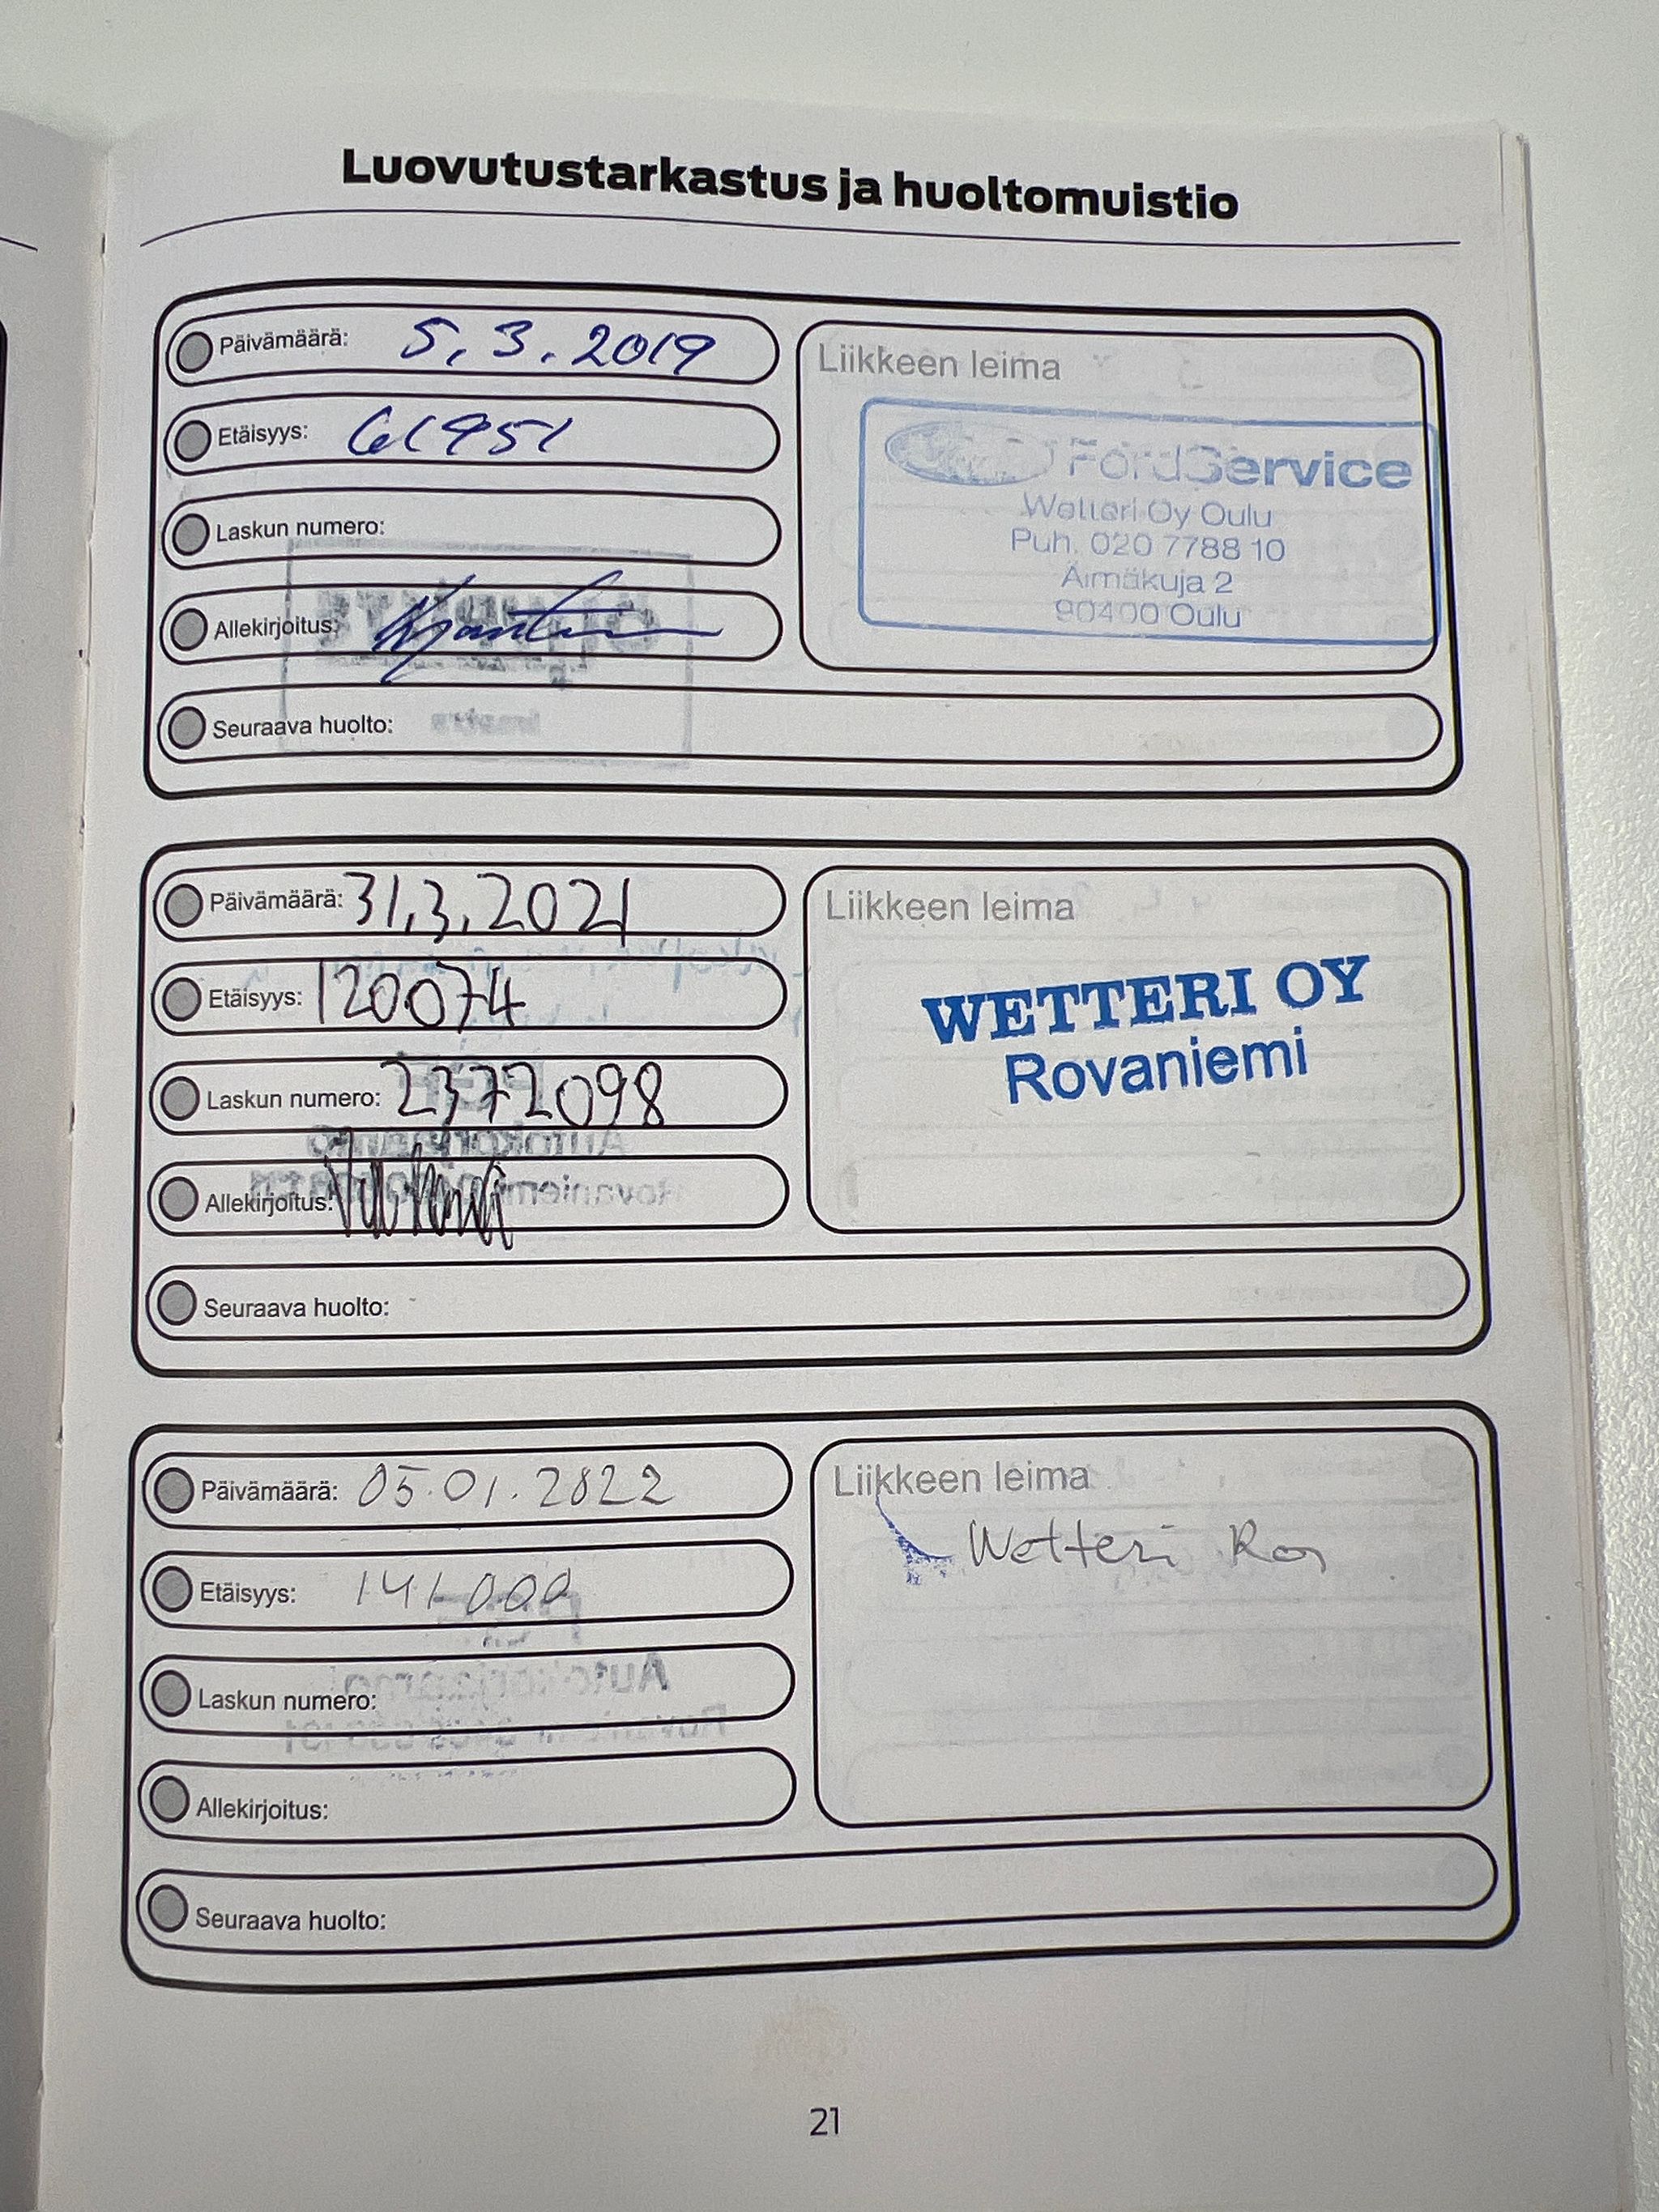 Luovutustarkastus ja huoltomuistio
Päivämäärä: 5.3.2019
Etäisyys: 61951
Laskun numero:
Allekirjoitus:
Seuraava huolto:
Liikkeen leima
FordService
Wetteri Oy Oulu
Puh. 020 7788 10
Äimäkuja 2
90400 Oulu
Päivämäärä: 31.3.2021
Etäisyys: 120074
Laskun numero: 2372098
Allekirjoitus:
Seuraava huolto:
Liikkeen leima
WETTERI OY
Rovaniemi
Päivämäärä: 05.01.2022
Etäisyys: 141000
Laskun numero:
Allekirjoitus:
Seuraava huolto:
Liikkeen leima
Wetteri
21